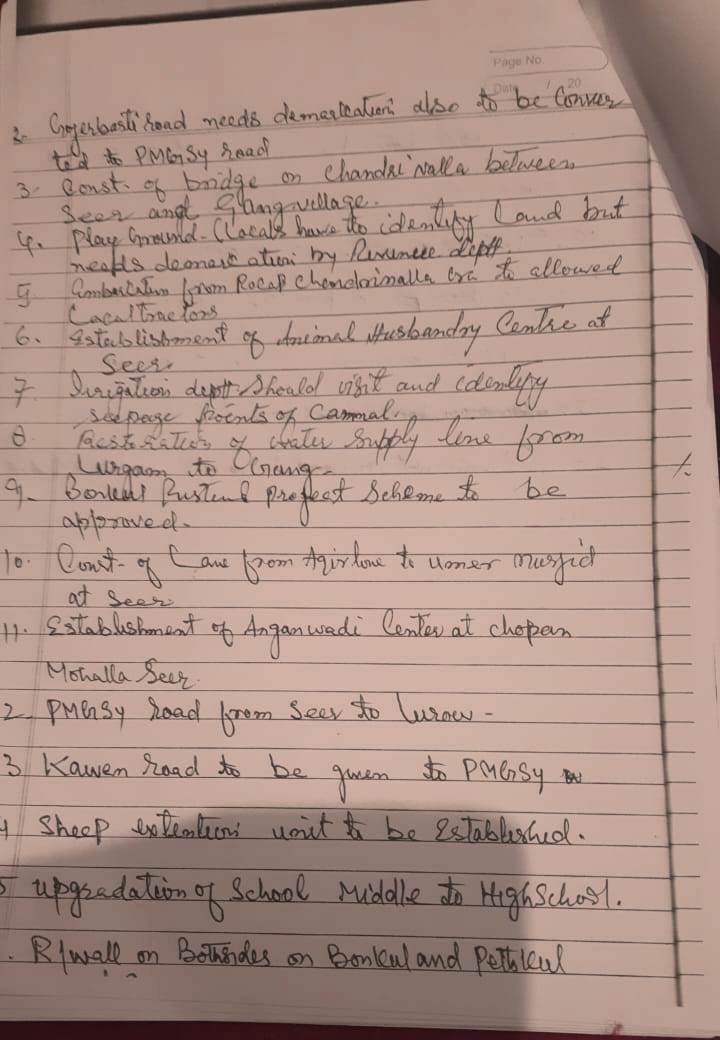 Page No.
Date 20
2- Gojerbasti Road needs demarcation also to be Conver
ted to PMGSy road
3- Const. of bridge on Chandri Nalla between
Seer and Gang village.
4. Play Ground - (Locals have to identify Land but
needs demarcation by Revenue deptt.
5 from to allowed
Local tractors
6. Establishment of Animal Husbandry Centre at
Seer.
7 Irrigation deptt should visit and identify
seepage points of Cannal.
8 Restoration of water Supply line from
Lurgam to Gang-
9- Bonkul project Scheme to be
approved-
10. Const- of Lane from to umer musjid
at Seer
11. Establishment of Anganwadi Center at chopan
Mohalla Seer.
2 PMGSy Road from Seer to Lurow -
3 Kawen Road to be given to PMGSy
4 Sheep extention unit to be Established.
5 upgradation of School Middle to High School.
. R/wall on Bothsides on Bonkul and Pethkul